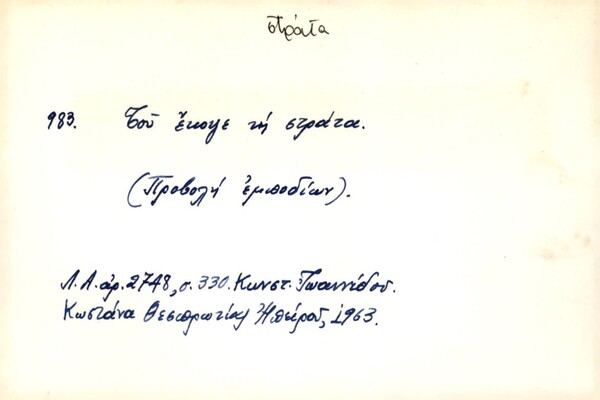 στράτα
983. Τοῦ ἔκοψε τή στράτα.
(Προβολή ἐμποδίων).
Λ.Α. ἀρ. 2748, σ. 330. Κωνστ. Ἰωαννίδου.
Κωστάνα Θεσπρωτίας Ἠπείρου, 1963.